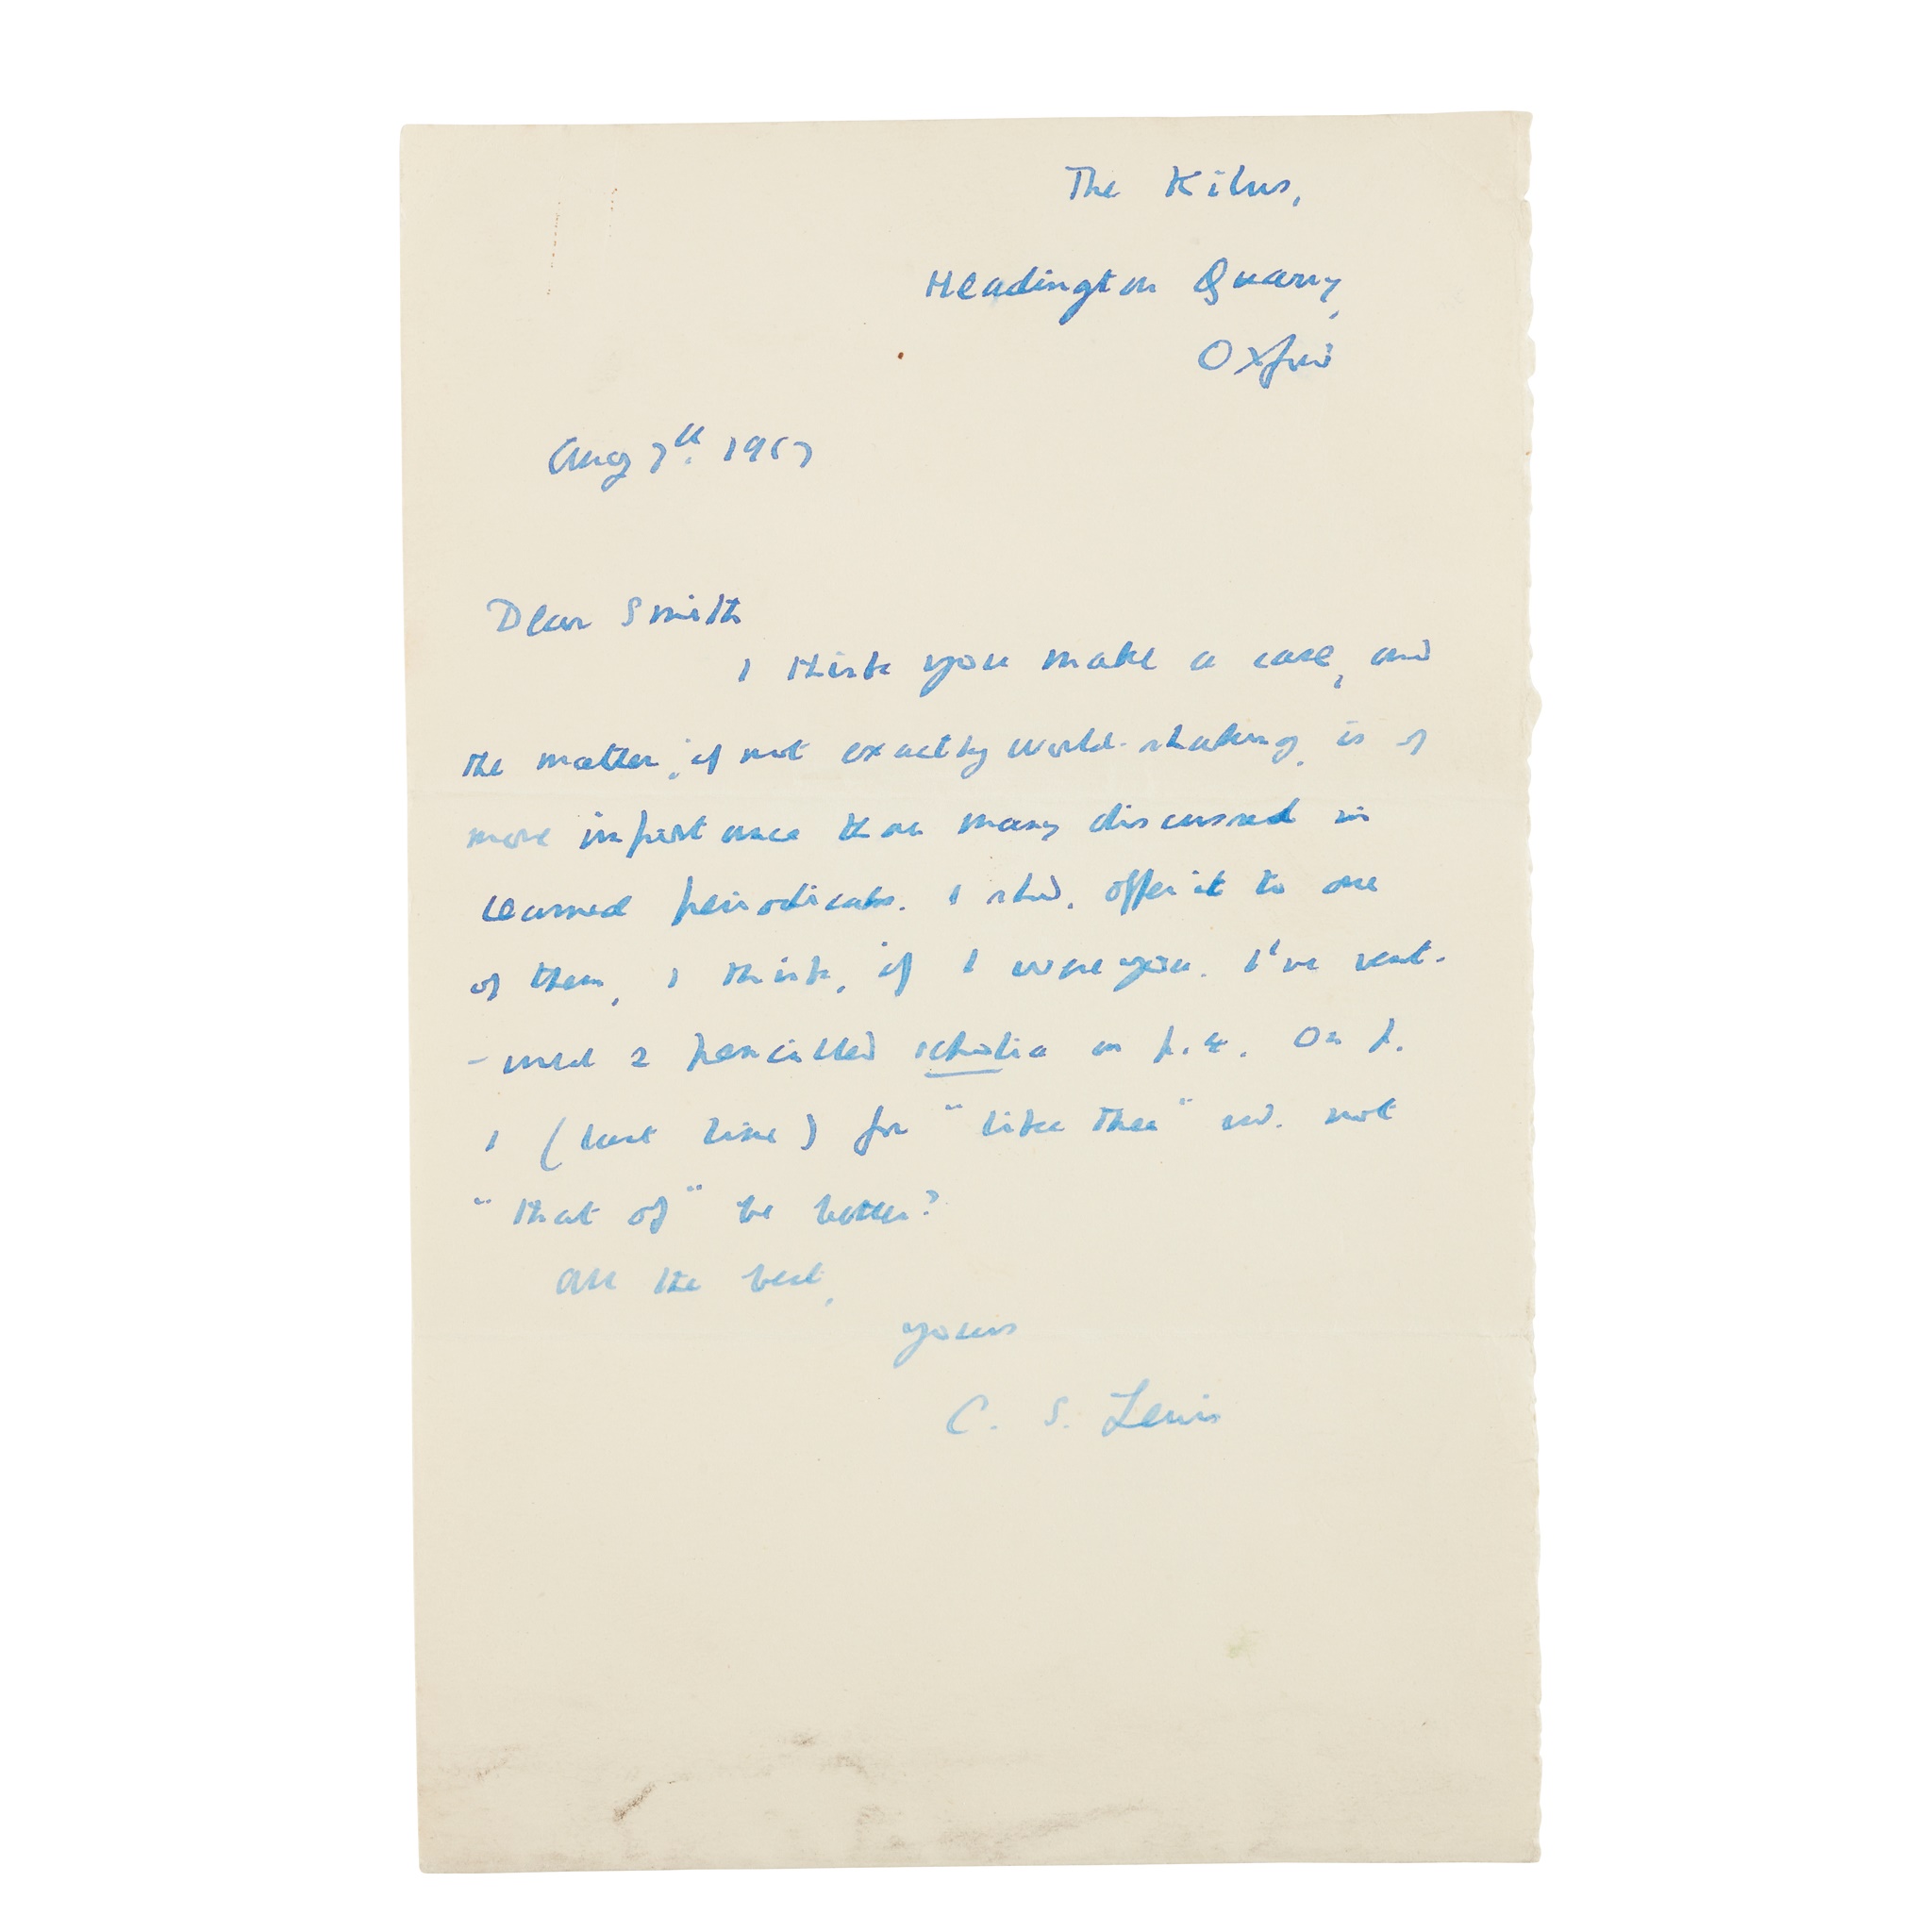 The Kilns,
Headington Quarry,
Oxford
Aug 7th. 1957
Dear Smith
I think you make a case, and
the matter, if not exactly world-shaking, is of
more importance than many discussed in
learned periodicals. I shd. offer it to one
of them, I think, if I were you. I've vent-
-ured 2 pencilled scholia on p. 4. On p.
1 (last line) for "like thee" wd. not
"that of" be better?
All the best,
yours
C. S. Lewis